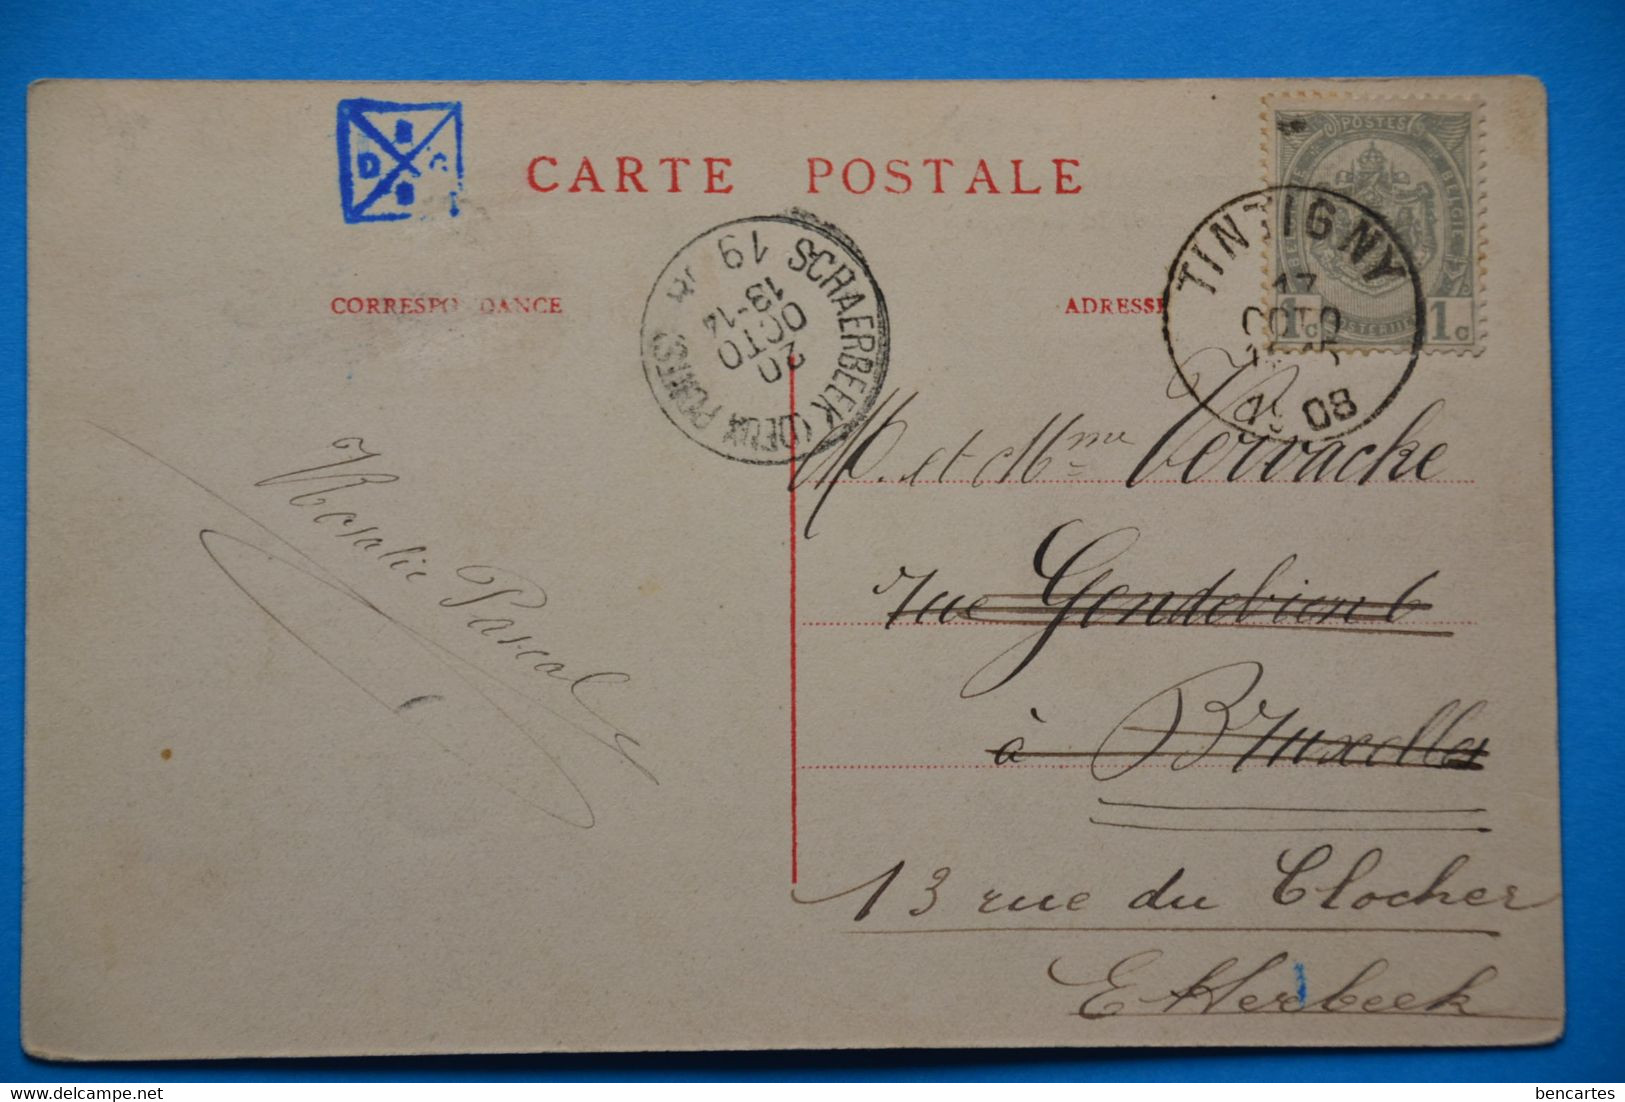 B
D C
B
CARTE POSTALE
CORRESPONDANCE
ADRESSE
SCHAERBEEK (DEUX PONTS)
20
OCTO
13-14
19 08
TINTIGNY
17
OCTO
19 08
POSTES
1c 1c
M. et Mme Vervacke
rue Gendebien 6
à Bruxelles
13 rue du Clocher
Etterbeek
Rosalie Pascal
delcampe.net
bencartes